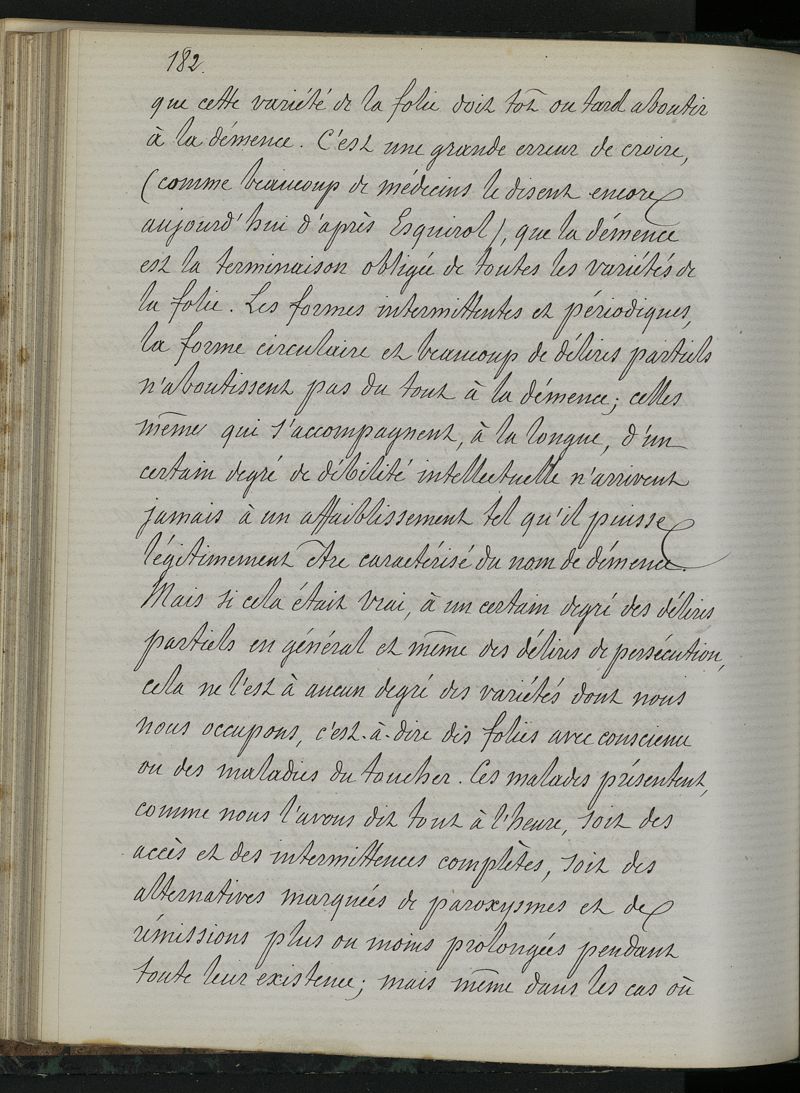 182.
que cette variété de la folie doit tôt ou tard aboutir
à la démence. C'est une grande erreur de croire,
(comme beaucoup de médecins le disent encore
aujourd'hui d'après Esquirol), que la démence
est la terminaison obligée de toutes les variétés de
la folie. Les formes intermittentes et périodiques,
la forme circulaire et beaucoup de délires partiels
n'aboutissent pas du tout à la démence; celles
même qui s'accompagnent, à la longue, d'un
certain degré de débilité intellectuelle n'arrivent
jamais à un affaiblissement tel qu'il puisse
légitimement être caractérisé du nom de démence.
Mais si cela était vrai, à un certain degré des délires
partiels en général et même des délires de persécution,
cela ne l'est à aucun degré des variétés dont nous
nous occupons, c'est-à-dire des folies avec conscience
ou des maladies du toucher. Ces malades présentent,
comme nous l'avons dit tout à l'heure, soit des
accès et des intermittences complètes, soit des
alternatives marquées de paroxysmes et de
rémissions plus ou moins prolongées pendant
toute leur existence; mais même dans les cas où